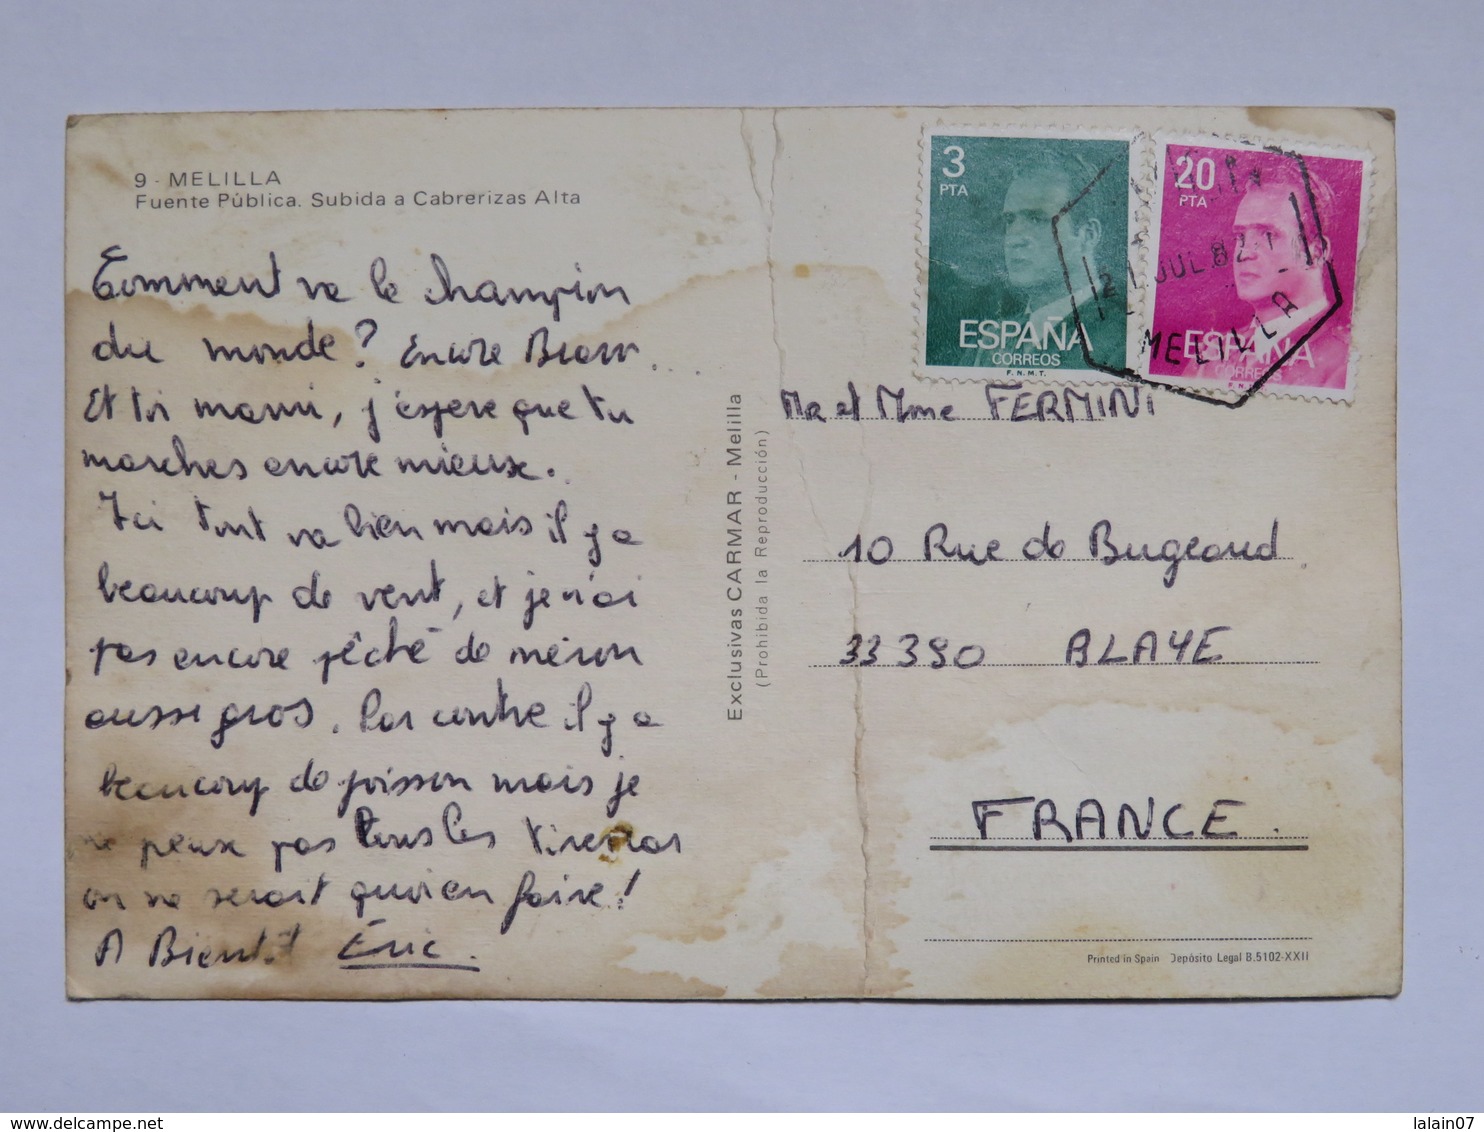 9 - MELILLA
Fuente Pública. Subida a Cabrerizas Alta
Comment va le champion
du monde? Encore Bravo.
Et toi mami, j'espere que tu
marches encore mieux.
Ici tout va bien mais il y a
beaucoup de vent, et je n'ai
pas encore pêché de mérou
aussi gros. Par contre il y a
beaucoup de poisson mais je
ne peux pas tous les tirer car
on ne serait quoi en faire!
A Bientôt Éric.
Exclusivas CARMAR - Melilla
(Prohibida la Reproducción)
3
PTA
ESPAÑA
CORREOS
F.N.M.T.
20
PTA
ESPAÑA
CORREOS
JUL.82
MELILLA
Mr et Mme FERMINI
10 Rue de Bugeaud
33390 BLAYE
FRANCE.
Printed in Spain Depósito Legal B.5102-XXII
lalain07